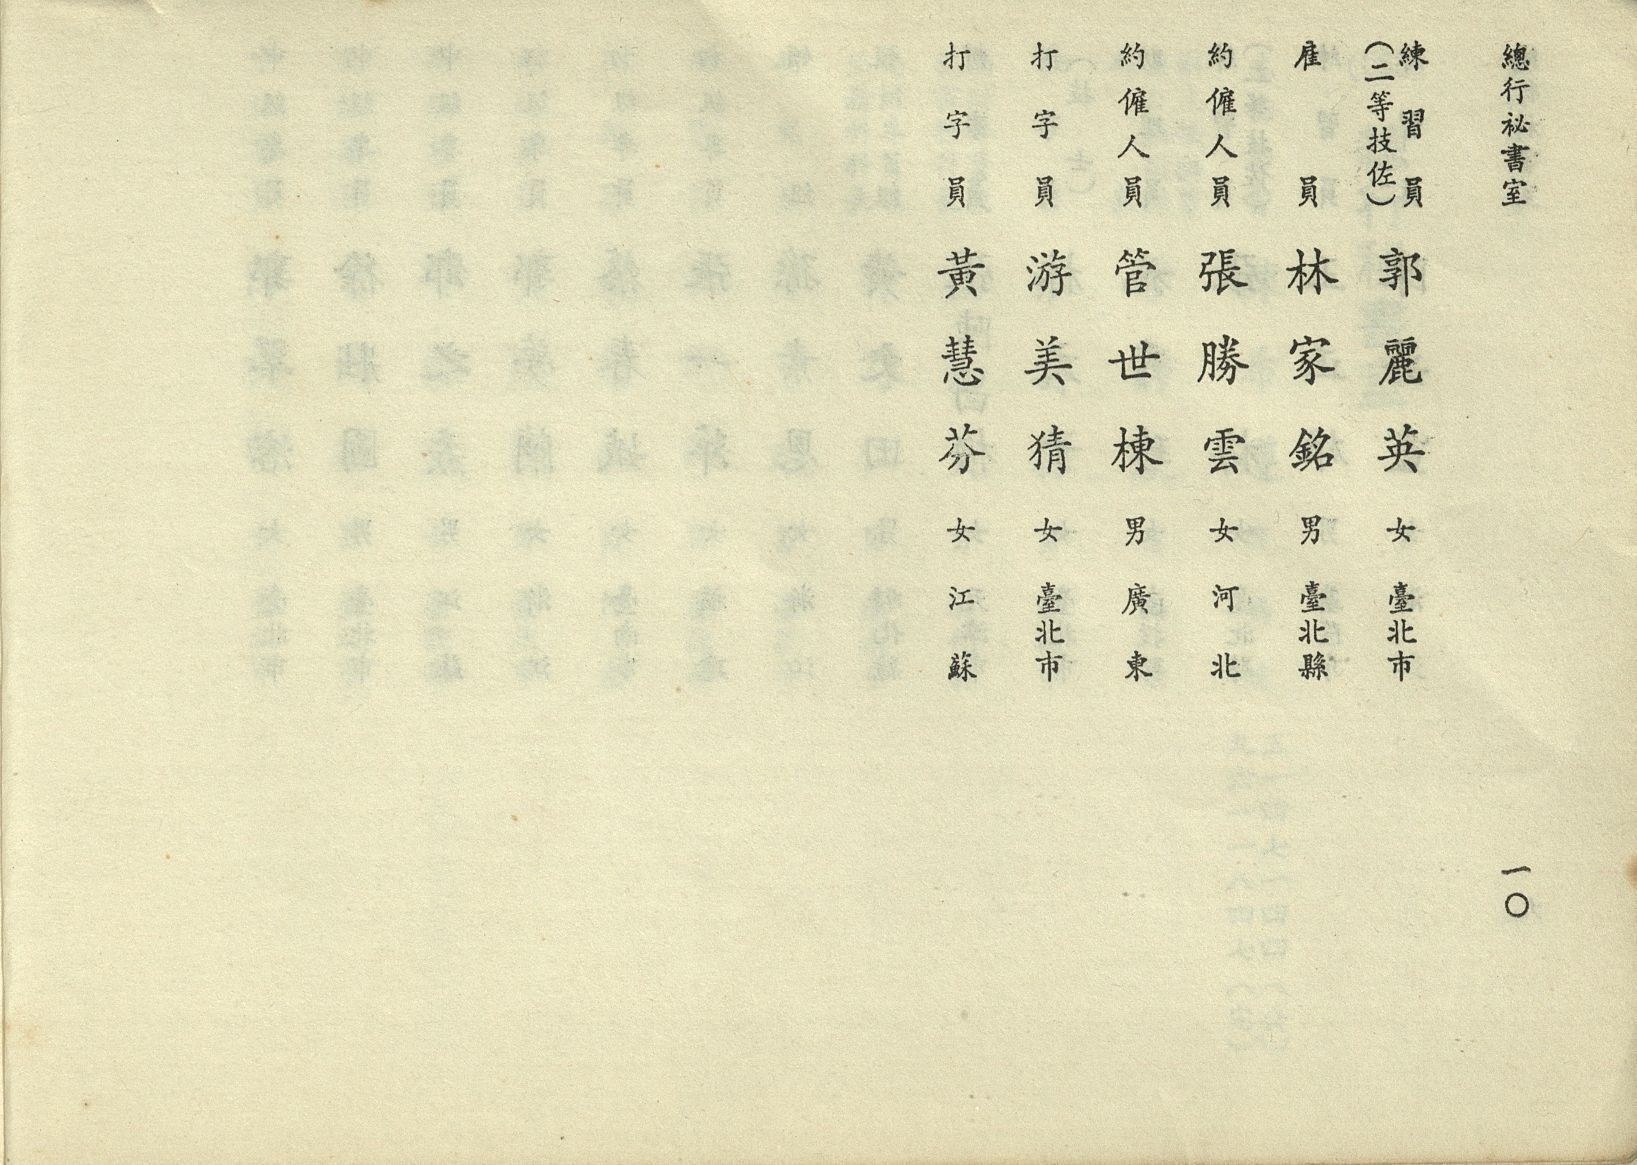 總行祕書室
練習員
(二等技佐)
郭麗英 女 臺北市
雇員 林家銘 男 臺北縣
約僱人員 張勝雲 女 河北
約僱人員 管世棟 男 廣東
打字員 游美猜 女 臺北市
打字員 黃慧芬 女 江蘇
一〇